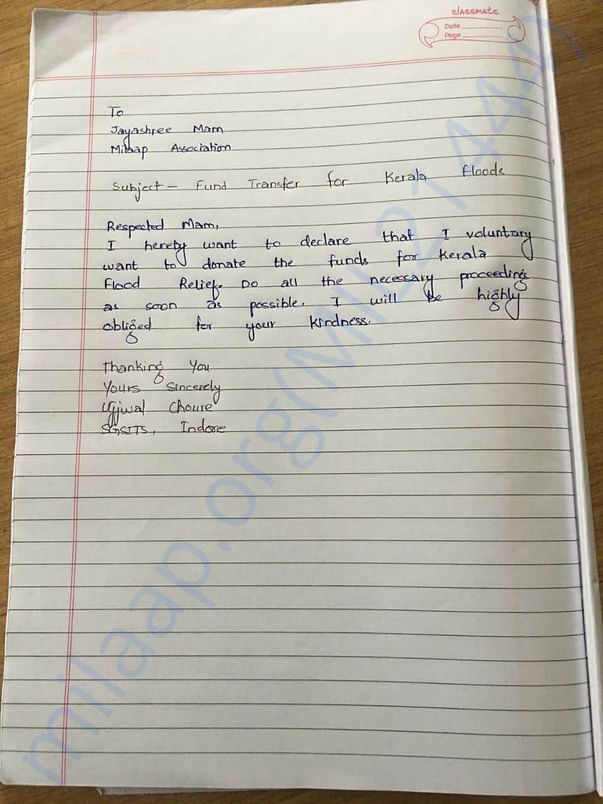 classmate
Date
Page
To
Jayashree Mam
Milaap Association
Subject - Fund Transfer for Kerala Floods
Respected Mam,
I hereby want to declare that I voluntary
want to donate the funds for Kerala
Flood Relief. Do all the necessary proceedings
as soon as possible. I will be highly
obliged for your kindness.
Thanking You
Yours Sincerely
Ujjwal Choure
SGSITS, Indore